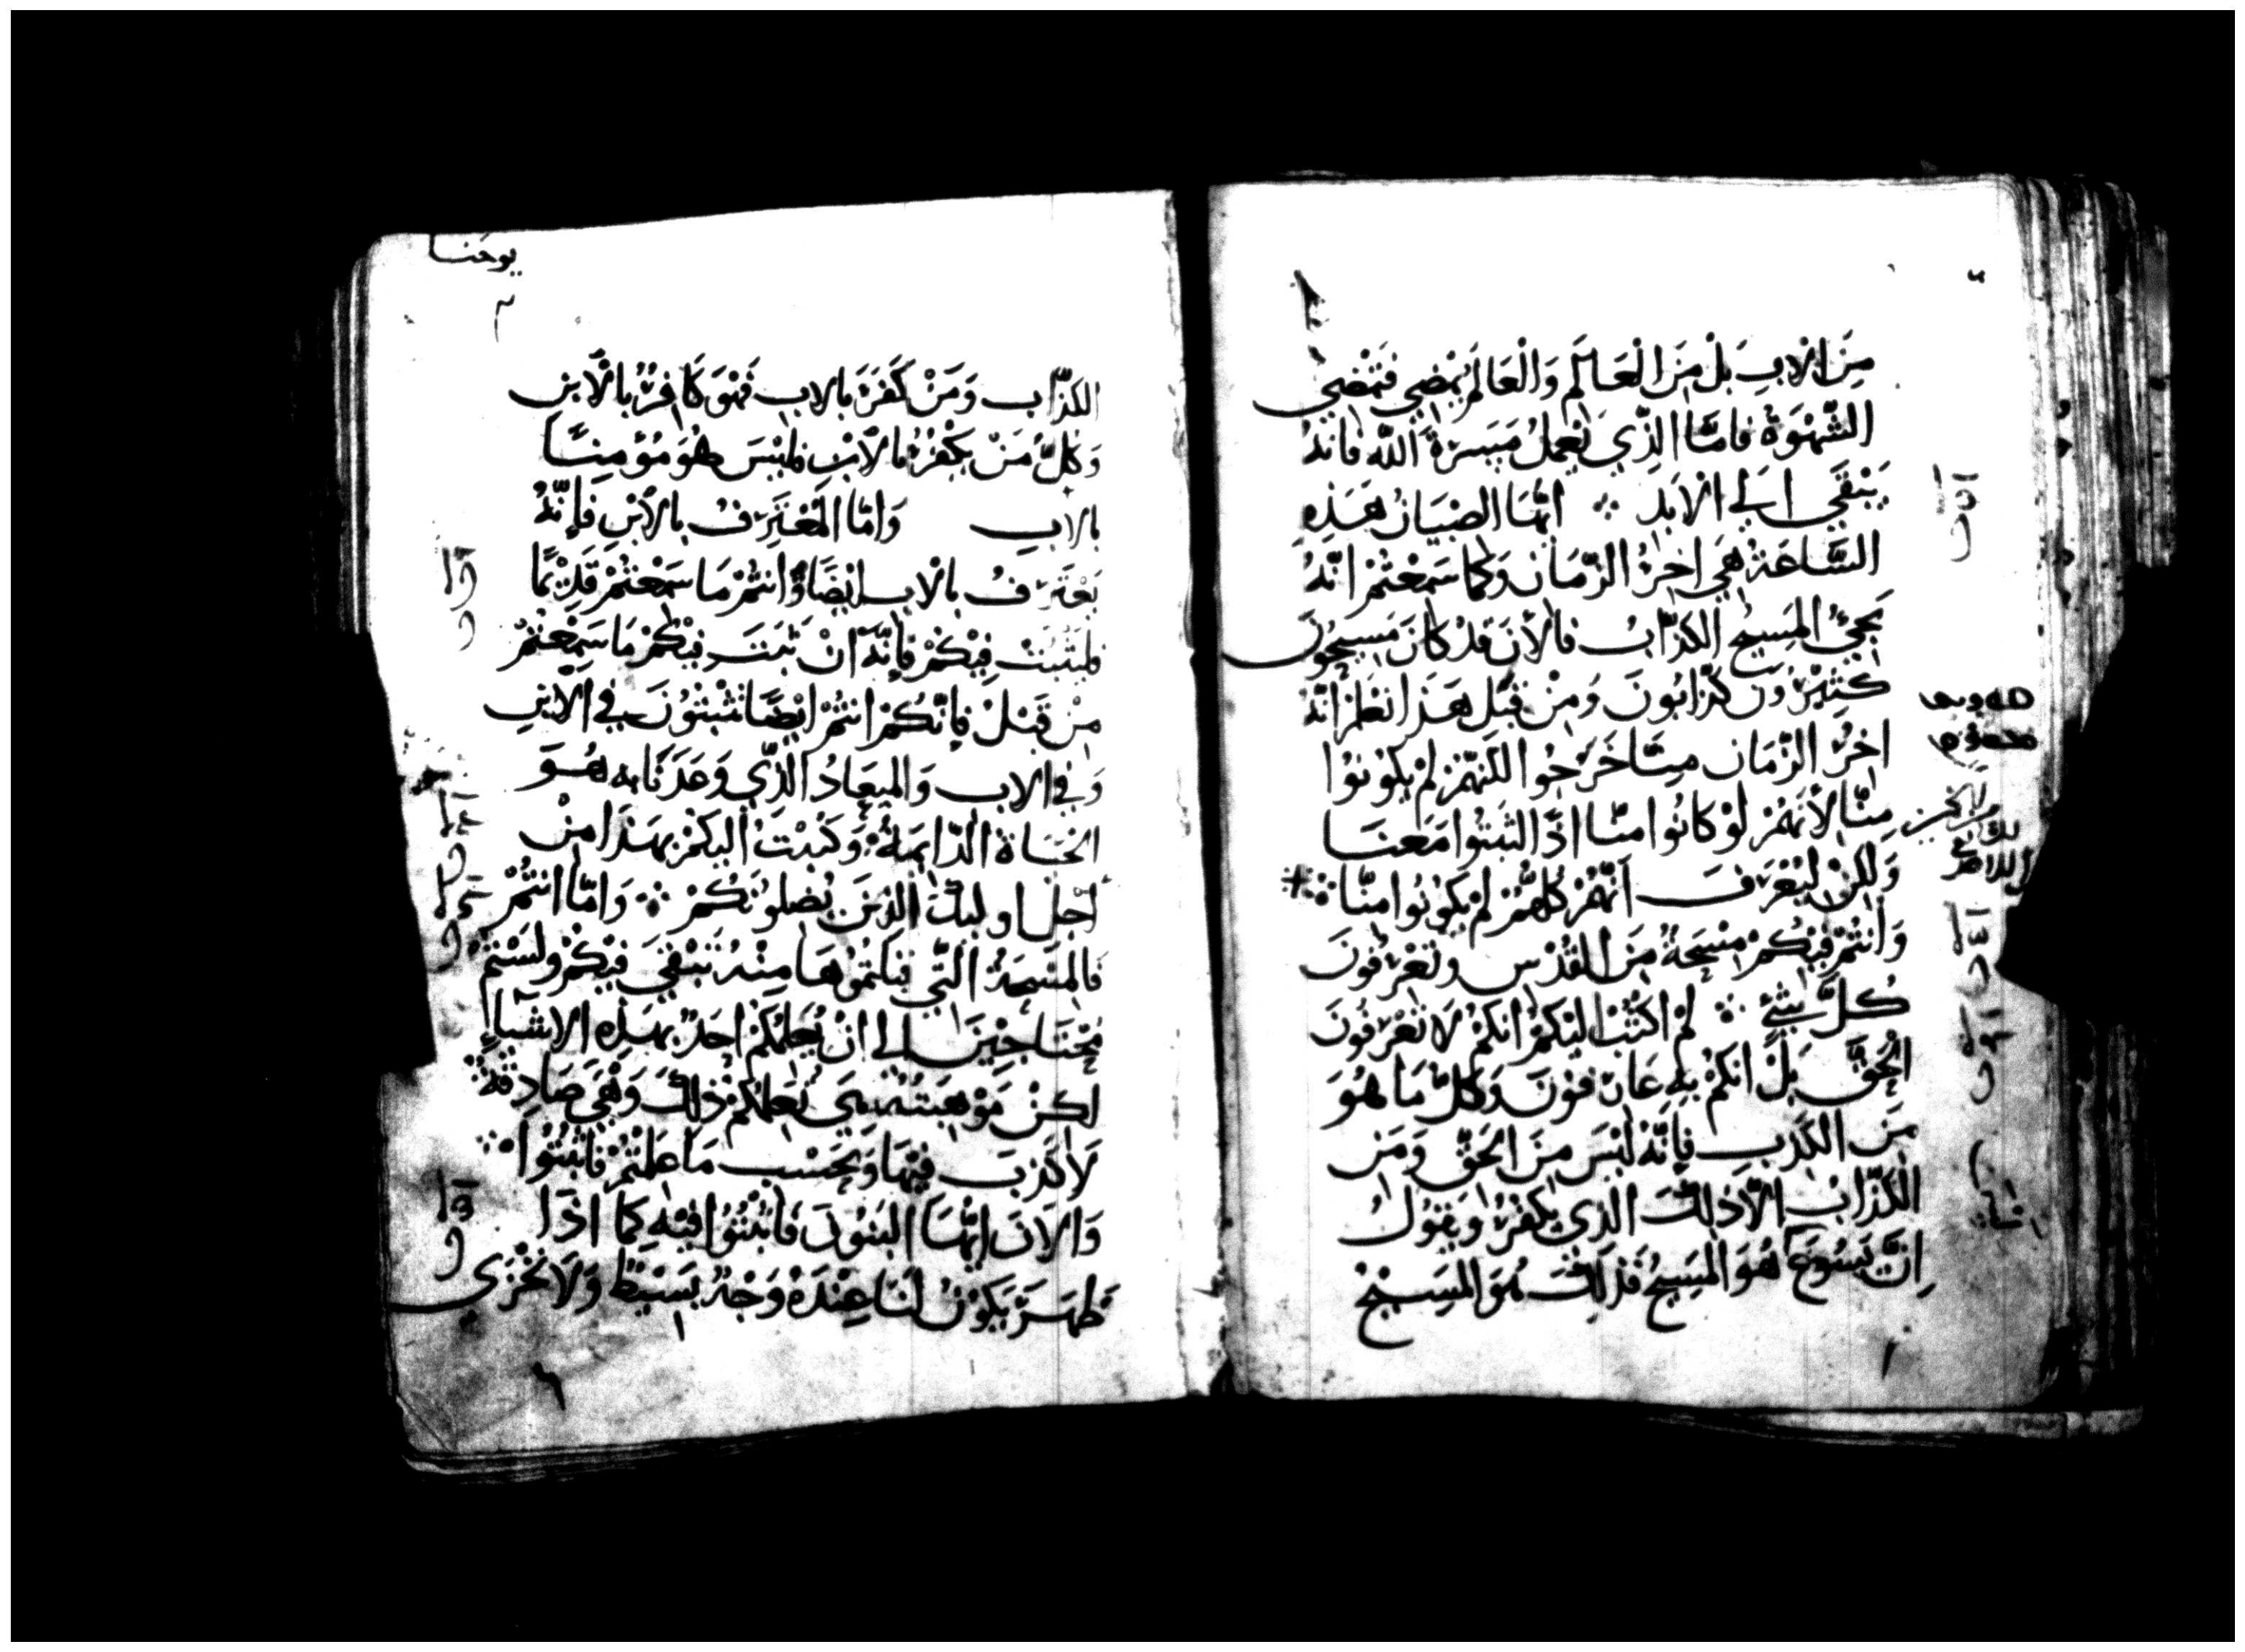 مِنَ الاَبِ بَلْ مِنَ الْعَالَم وَالْعَالَمُ يَمْضِي فَتَمْضِي
الشَّهْوَةُ فامّا الذِّي يَعْمَلُ مَسَرَّةَ اللّه فانهُ
يَبْقَي الَي الاَبَدِ ايُّهَا الصِبيَان هَذِهِ
السَّاعَةُ هِيَ اخِرُ الزَّمَان وَكما سَمِعْتُمْ انّهُ
يَجِيُ المَسِيح الكذّابُ فالأنَ قَدْ كَانَ مَسِيحُون
كَثِيْرُون كذّابُونَ وَمِنْ قِبَل هَذَا نَعْلَمُ انّهُ
اخِرُ الزّمَان مِنّا خَرَجُوا لكنهُمْ لَمْ يَكونوُا
مِنّا لأنهُمْ لَوْ كَانُوا منّا اذًا لثبَتُوا مَعَنا
وَلكِنْ لِيُعْرَفَ أنّهُمْ كُلّهُمْ لَمْ يَكُونُوا منّا
وَانتُمْ فِيْكُمْ مِسْحَةُ مِنَ القُدْس وتَعْرِفُونَ
كُلَّ شَيْءٍ لَمْ اكتُبْ اليْكُمْ انكُمْ لاَ تَعْرِفُونَ
الْحَقَّ بَلْ انكُمْ بِهِ عَارِفونَ وَكلُّ مَا هُوَ
مِنَ الكَذِب فَإِنّهُ لَيْسَ مِنَ الحَقِّ وَمَن
الكَذّابُ الاّ ذلِكَ الذِي يَكْفُرُ وَيَقول
اِنَّ يَسُوعَ هُوَ المَسِيحُ فَذلِكَ هُوَ المَسِيحُ
يوحنا
الكذّاب وَمَنْ كَفَرَ بالاب فَهْوَ كَافِرٌ بالأبنِ
وَكلُّ مَنْ يكْفُرُ بالأبنِ فليْسَ هُوَ مُؤمِنًا
بالابِ وَامّا المُعْتَرِفُ بالأبْنِ فَإِنّهُ
يَعْتَرِفُ بالاَبِ ايْضًا وَانتُمْ مَا سَمِعْتُمْ قَدِيْمًا
فليَثبُتْ فِيْكُمْ فَإِنّهُ انْ ثَبَتَ فِيْكُمْ مَا سَمِعْتُمْ
مِنْ قَبْلُ فَإِنّكُمْ انتُمْ ايْضًا تَثْبتُونَ في الابْنِ
وَفي الاب وَالمِيعَادُ الذِّي وَعَدَنَا بِه هُوَ
الحَيَاة الدّايمَةُ وَكَتبْتُ اليكمْ بِهَذَا مِنْ
اجْل اوليكَ الذِينَ يُضلوُنَكُمْ وَامّا انتُمْ
فَالمَسْحَةُ التَّي قَبلتمُوُهَا مِنْهُ تَبْقَي فِيْكُمْ ولَسْتُمْ
مُحْتَاجِيْنَ الي انْ يُعَلّمَكُمْ احَدٌ بِهَذِهِ الاشيَاء
لكنْ مَوْهِبَتُهُ هِيَ تُعَلِّمُكُمْ ذلِكَ وَهْيَ صَادِقَة
لاَ كَذِبَ فِيْهَا وَبِحَسْب مَا علمتُمْ فَاثبُتُوُا
وَالاَنَ ايُّهَا البَنُونَ فَاثبُتُوُا فِيْهِ كَمَا اذَا
ظهَرَ يَكوْنُ لنَا عِنْدَهُ وَجْهٌ بَسِيْطٌ وَلاَ نَخْزَي